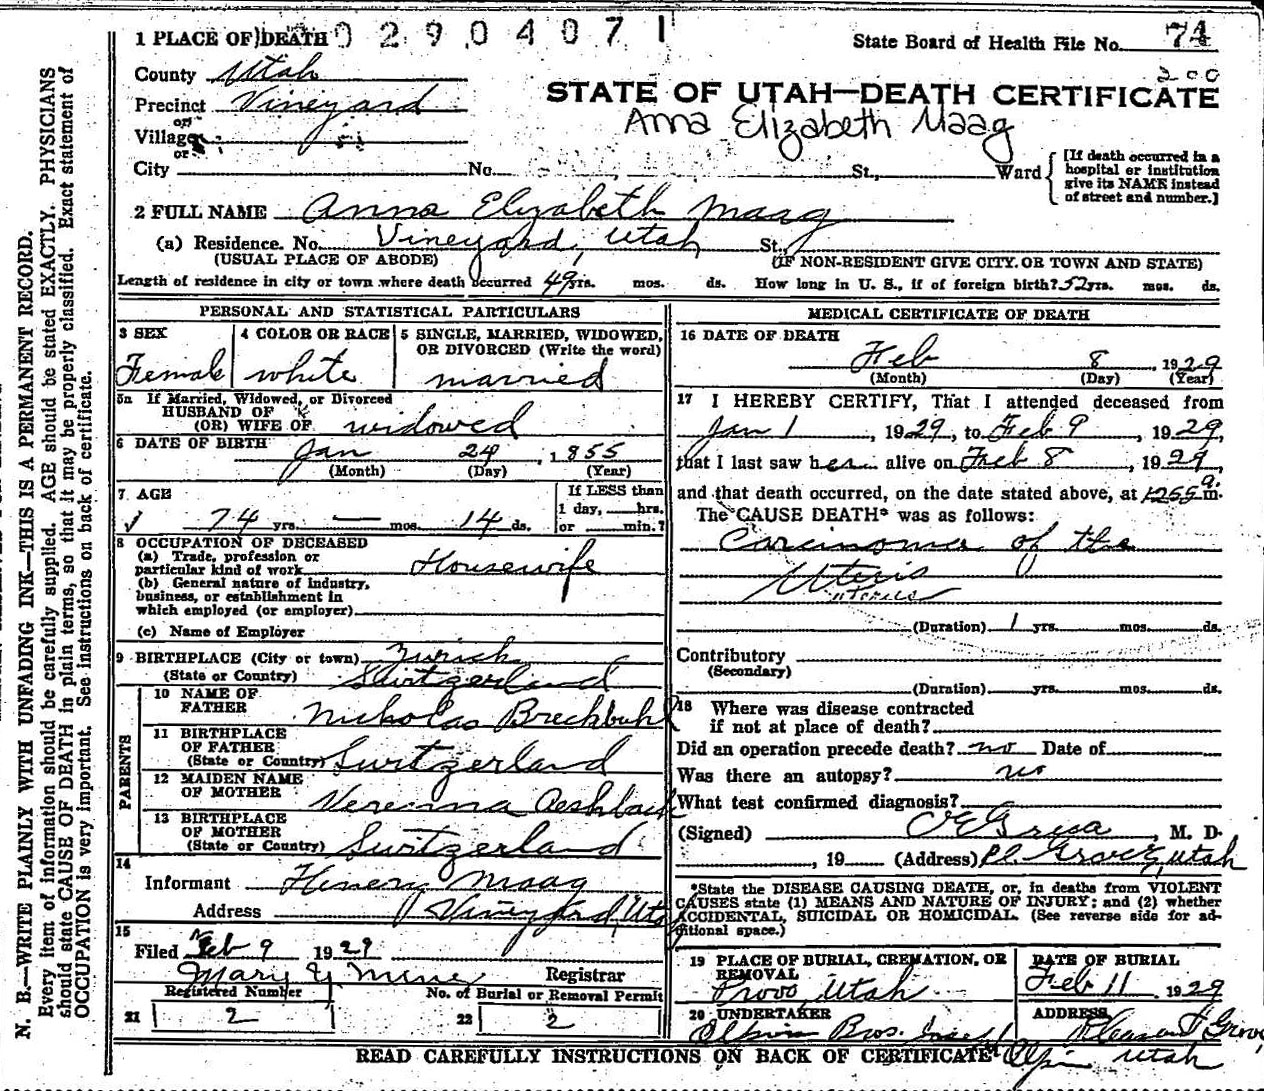 1 PLACE OF DEATH 0 2 9 0 4 0 7 1
State Board of Health File No. 74
200
County Utah
STATE OF UTAH—DEATH CERTIFICATE
Precinct Vineyard
Anna Elizabeth Maag
or
Village
or
City No. St., Ward
[If death occurred in a
hospital or institution
give its NAME instead
of street and number.]
2 FULL NAME Anna Elizabeth Maag
(a) Residence. No. Vineyard, Utah St.,
(USUAL PLACE OF ABODE) (IF NON-RESIDENT GIVE CITY OR TOWN AND STATE)
Length of residence in city or town where death occurred 49 yrs. mos. ds. How long in U. S., if of foreign birth? 52 yrs. mos. ds.
PERSONAL AND STATISTICAL PARTICULARS
3 SEX
Female
4 COLOR OR RACE
white
5 SINGLE, MARRIED, WIDOWED,
OR DIVORCED (Write the word)
married
5a If Married, Widowed, or Divorced
HUSBAND OF
(OR) WIFE OF widowed
6 DATE OF BIRTH Jan 24, 1855
(Month) (Day) (Year)
7 AGE
74 yrs. — mos. 14 ds.
If LESS than
1 day, hrs.
or min.?
8 OCCUPATION OF DECEASED
(a) Trade, profession or
particular kind of work Housewife
(b) General nature of industry,
business, or establishment in
which employed (or employer)
(c) Name of Employer
9 BIRTHPLACE (City or town) Zurich
(State or Country) Switzerland
PARENTS
10 NAME OF
FATHER Nickolas Brechbuhl
11 BIRTHPLACE
OF FATHER
(State or Country) Switzerland
12 MAIDEN NAME
OF MOTHER Verenna
13 BIRTHPLACE
OF MOTHER
(State or Country) Switzerland
14
Informant Henery Maag
Address Vineyard, Utah
15
Filed Feb 9 1929
Mary Y. Registrar
Registered Number No. of Burial or Removal Permit
21 2 22 2
MEDICAL CERTIFICATE OF DEATH
16 DATE OF DEATH
Feb 8 1929
(Month) (Day) (Year)
17 I HEREBY CERTIFY, That I attended deceased from
Jan 1, 1929, to Feb 9, 1929,
that I last saw her alive on Feb 8, 1929,
and that death occurred, on the date stated above, at 1255 a. m.
The CAUSE DEATH* was as follows:
Carcinoma of the
Uteris
uterus
(Duration) 1 yrs. mos. ds.
Contributory
(Secondary)
(Duration) yrs. mos. ds.
18 Where was disease contracted
if not at place of death?
Did an operation precede death? no Date of
Was there an autopsy? no
What test confirmed diagnosis?
(Signed) , M. D.
, 19 (Address) Pl. Grove, Utah
*State the DISEASE CAUSING DEATH, or, in deaths from VIOLENT
CAUSES state (1) MEANS AND NATURE OF INJURY; and (2) whether
ACCIDENTAL, SUICIDAL OR HOMICIDAL. (See reverse side for ad-
ditional space.)
19 PLACE OF BURIAL, CREMATION, OR
REMOVAL
Provo, Utah
DATE OF BURIAL
Feb 11 1929
20 UNDERTAKER
Olpin Bros.
ADDRESS
Pleasant Grove,
Utah
READ CAREFULLY INSTRUCTIONS ON BACK OF CERTIFICATE
N. B.—WRITE PLAINLY WITH UNFADING INK—THIS IS A PERMANENT RECORD.
Every item of information should be carefully supplied. AGE should be stated EXACTLY. PHYSICIANS
should state CAUSE OF DEATH in plain terms, so that it may be properly classified. Exact statement of
OCCUPATION is very important. See instructions on back of certificate.